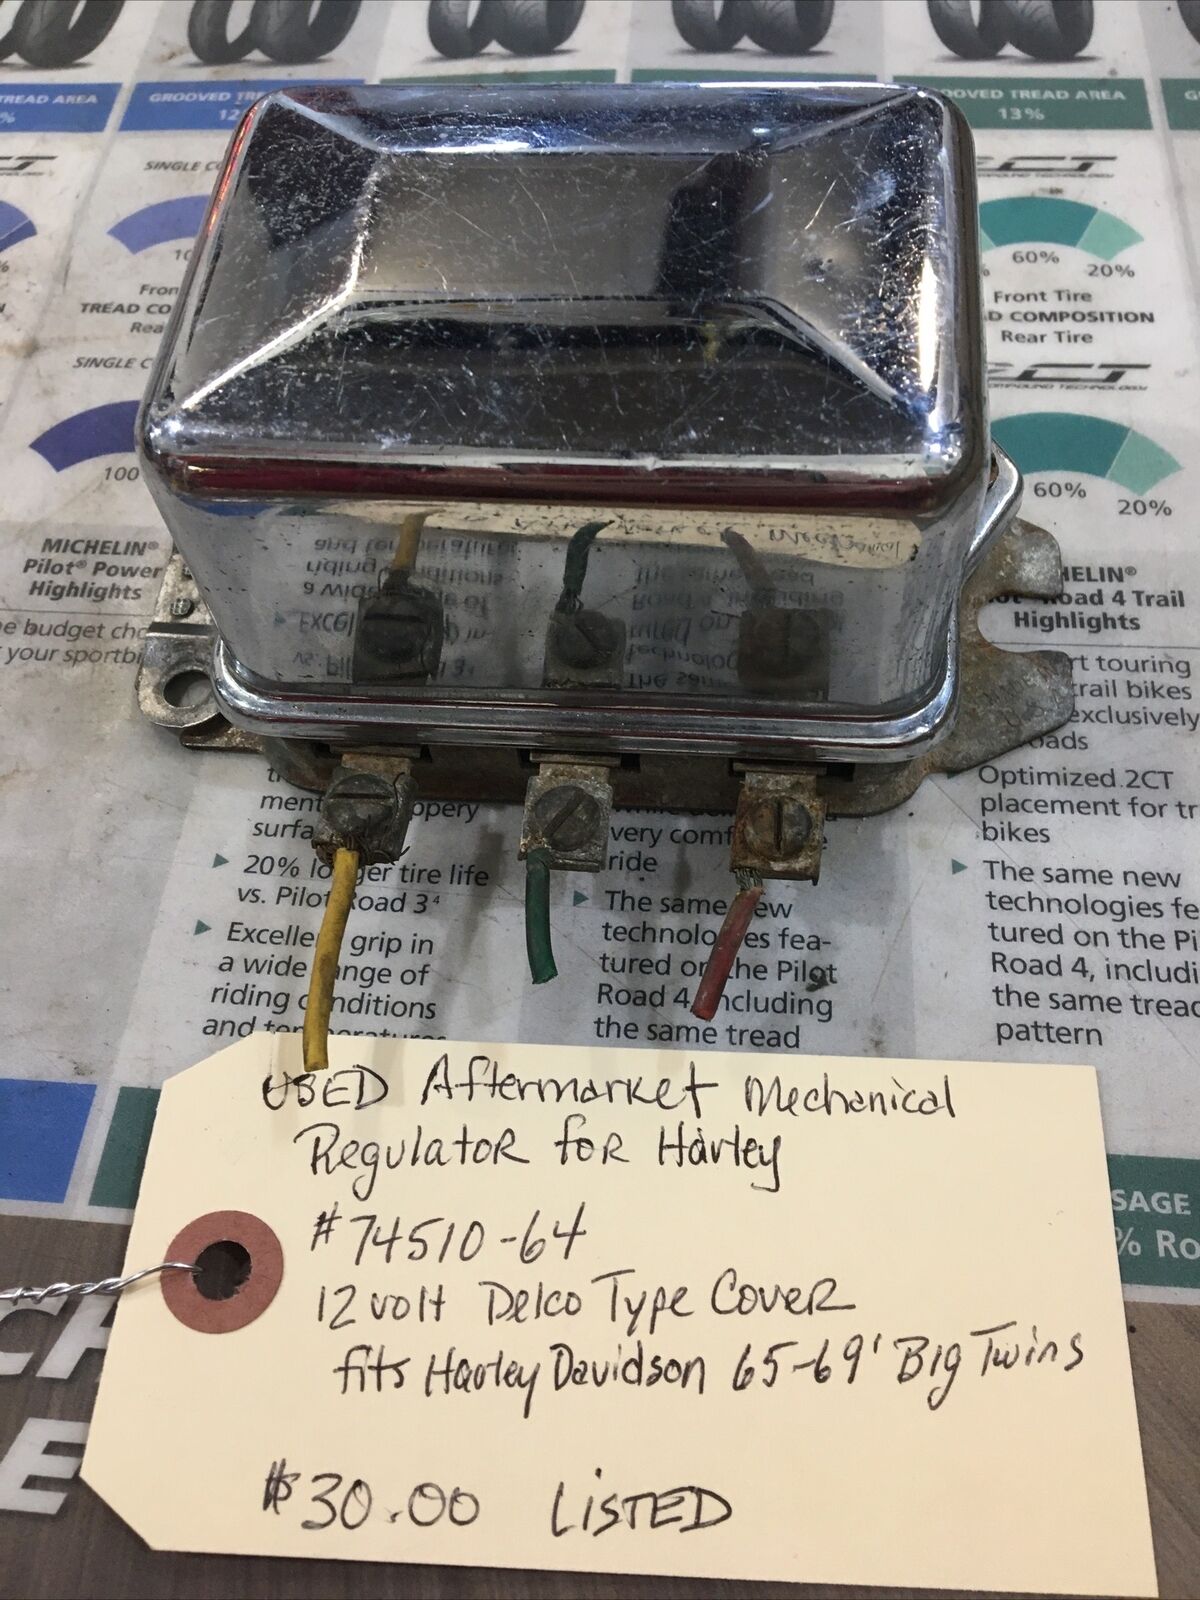 TREAD AREA
GROOVED TRE
OOVED TREAD AREA
%
12
13%
SINGLE CO
2CT
OMPOUND TECHNOLOGY
10
60%
20%
Fron
TREAD CO
Rea
Front Tire
D COMPOSITION
Rear Tire
SINGLE C
2CT
OMPOUND TECHNOLOGY
100
60%
20%
MICHELIN®
Pilot® Power
Highlights
HELIN®
ot® Road 4 Trail
Highlights
e budget cho
your sportbi
rt touring
trail bikes
exclusively
oads
Optimized 2CT
placement for tr
bikes
The same new
technologies fe
tured on the Pi
Road 4, includi
the same tread
pattern
ppery
surfa
20% longer tire life
vs. Pilot Road 3⁴
Excellent grip in
a wide range of
riding conditions
and temperatures
very comf
ride
The same new
technologies fea-
tured on the Pilot
Road 4, including
the same tread
USED Aftermarket Mechanical
Regulator for Harley
#74510-64
12 volt Delco Type Cover
fits Harley Davidson 65-69' Big Twins
$30.00 LISTED
SAGE
% Ro